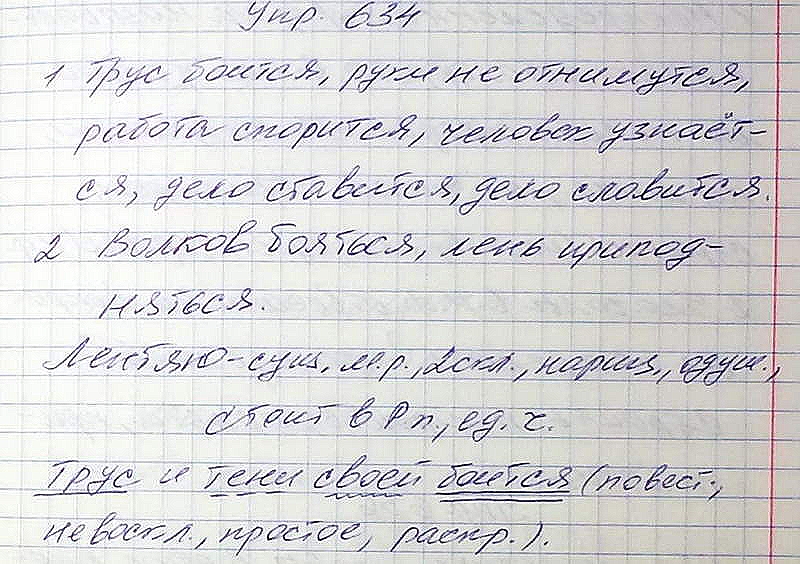 Упр. 634
1 Трус боится, руки не отнимутся,
работа спорится, человек узнаёт-
ся, дело ставится, дело славится.
2 Волков бояться, лень припод-
няться.
Лентяю-сущ, м.р., 2скл., нариц., одуш.,
стоит в Р.п., ед. ч.
Трус и тени своей боится (повест.,
невоскл., простое, распр.).